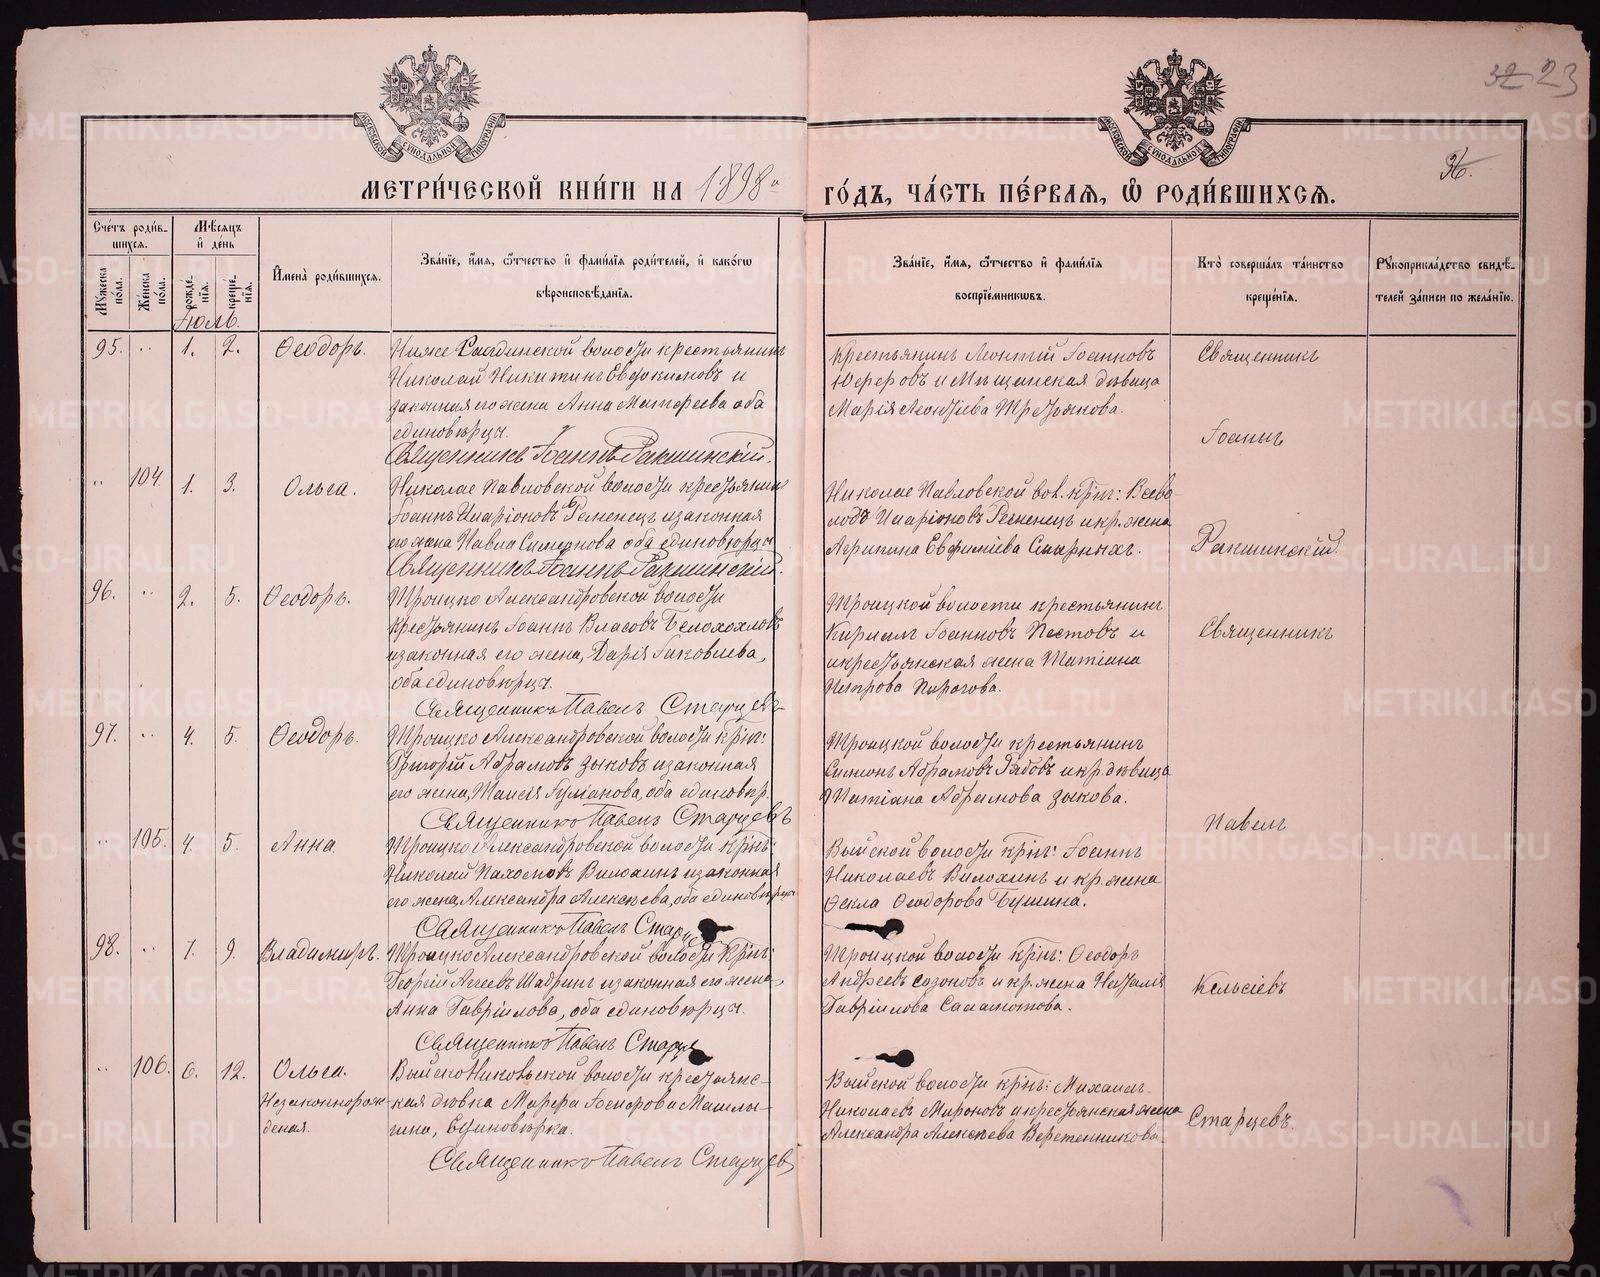 32 23
36.
МОСКОВСКОЙ СУНОДАЛЬНОЙ ТИПОГРАФІИ
МОСКОВСКОЙ СУНОДАЛЬНОЙ ТИПОГРАФІИ
МЕТРИ́ЧЕСКОЙ КНИ́ГИ НА 1898й ГО́ДЪ, ЧА́СТЬ ПЕ́РВАЯ, Ѡ РОДИ́ВШИХСЯ.
Сче́тъ роди́вшихся.
Му́жеска по́ла.
Же́нска по́ла.
Мѣ́сяцъ и де́нь
рожде́нїя.
креще́нїя.
Имена̀ роди́вшихся.
Зва́нїе, и́мя, о́тчество и фами́лїя роди́телей, и како́гѡ
вѣроисповѣ́данїя.
Зва́нїе, и́мя, о́тчество и фами́лїя
воспрїе́мникѡвъ.
Кто̀ соверша́лъ та́инство
креще́нїя.
Рꙋкоприкла́дство свидѣ́-
телей за́писи по жела́нїю.
Іюль.
95. " 1. 2. Ѳеодоръ.
Ниже Салдинской волости крестьянинъ
Николай Никитинъ Евдокимовъ и
законная его жена Анна Матфеева оба
единовѣрцы.
Священникъ Іоаннъ Ракшинскій.
Крестьянинъ Леонтій Іоанновъ
Юферовъ и Мѣщанская дѣвица
Марія Леонтіева Третьякова.
Священникъ
Іоаннъ
" 104 1. 3. Ольга.
Николае Павловской волости крестьянинъ
Іоаннъ Иларіоновъ Ременецъ и законная
его жена Павла Симеонова оба единовѣрцы
Священникъ Іоаннъ Ракшинскій.
Николае Павловской вол. крнъ: Всево-
лодъ Иларіоновъ Ременецъ и кр. жена
Агрипина Евфиміева Смирныхъ.
Ракшинскій.
96. " 2. 5. Ѳеодоръ.
Троицко Александровской волости
крестьянинъ Іоаннъ Власовъ Белохохловъ
и законная его жена, Дарія Іаковлева,
оба единовѣрцы.
Священникъ Павелъ Старцевъ
Троицкой волости крестьянинъ
Кириллъ Іоанновъ Пестовъ и
и крестьянская жена Татіана
Петрова Пирогова.
Священникъ
97. " 4. 5. Ѳеодоръ.
Троицко Александровской волости крнъ:
Григорій Абрамовъ Зыковъ и законная
его жена, Таисія, оба единовѣр.
Священникъ Павелъ Старцевъ
Троицкой волости крестьянинъ
Симеонъ Абрамовъ Рябовъ и кр. дѣвица
Татіана Абрамова Зыкова.
Павелъ
" 105. 4. 5. Анна
Троицко Александровской волости крнъ:
Николай Пахомовъ Вилохинъ и законная
его жена Александра Алексѣева, оба единовѣрцы
Священникъ Павелъ Старц
Выйской волости крнъ: Іоаннъ
Николаевъ Вилохинъ и кр. жена
Ѳекла Ѳеодорова Бушина.
98. " 7. 9. Владимиръ.
Троицко Александровской волости крнъ:
Георгій Агеевъ Шабринъ и законная его жена,
Анна Гавріилова, оба единовѣрцы.
Священникъ Павелъ Старце
Троицкой волости крнъ: Ѳеодоръ
Андреевъ Созоновъ и кр. жена Наталія
Гавріилова Саламатова.
Кельсіевъ
" 106. 6. 12. Ольга.
Незаконнорож-
деная.
Выйско Никольской волости крестьянс-
кая дѣвка Марфа Іосифова Машлы-
гина, единовѣрка.
Священникъ Павелъ Старцевъ
Выйской волости крнъ: Михаилъ
Николаевъ Мироновъ и крестьянская жена
Александра Алексѣева Веретенникова.
Старцевъ.
METRIKI.GASO-URAL.RU